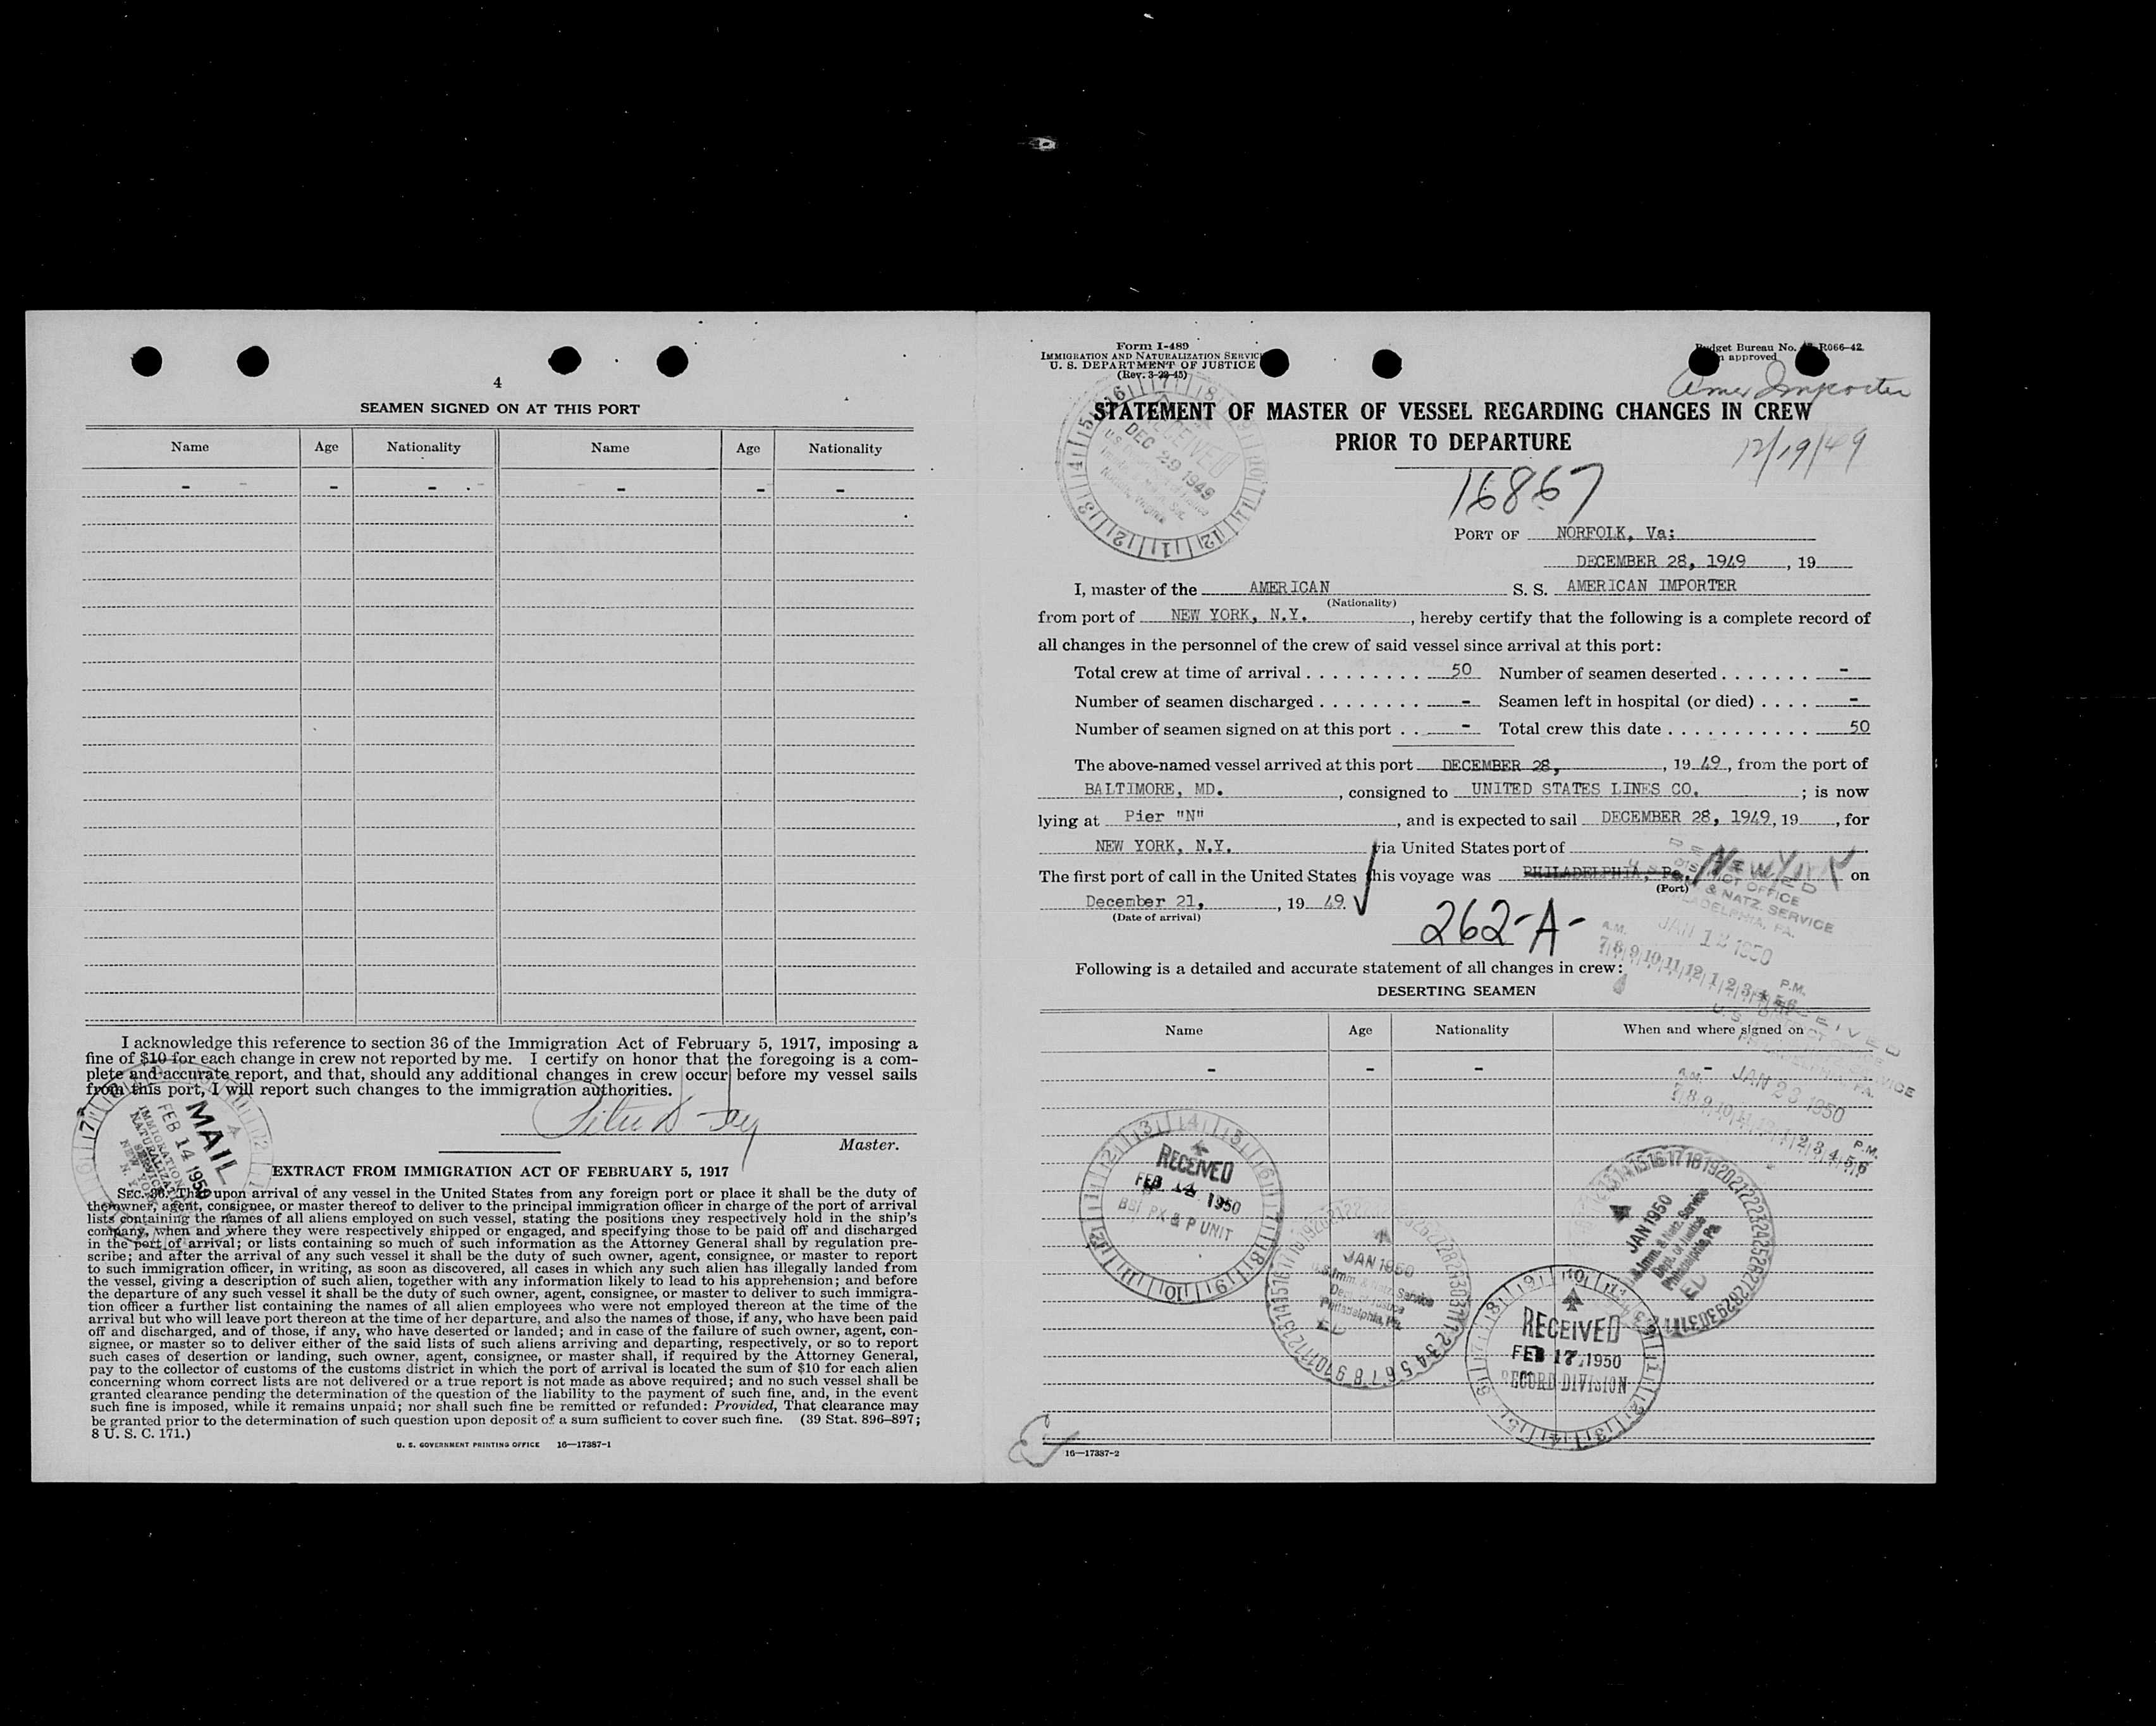 4
SEAMEN SIGNED ON AT THIS PORT
Name Age Nationality Name Age Nationality
- - - - - -
I acknowledge this reference to section 36 of the Immigration Act of February 5, 1917, imposing a
fine of $10 for each change in crew not reported by me. I certify on honor that the foregoing is a com-
plete and accurate report, and that, should any additional changes in crew occur before my vessel sails
from this port, I will report such changes to the immigration authorities.
Master.
MAIL
FEB 14 1950
IMMIGRATION
NATURALIZATION
SERVICE
NEW YORK
N. Y.
EXTRACT FROM IMMIGRATION ACT OF FEBRUARY 5, 1917
SEC. 36. That upon arrival of any vessel in the United States from any foreign port or place it shall be the duty of
the owner, agent, consignee, or master thereof to deliver to the principal immigration officer in charge of the port of arrival
lists containing the names of all aliens employed on such vessel, stating the positions they respectively hold in the ship's
company, when and where they were respectively shipped or engaged, and specifying those to be paid off and discharged
in the port of arrival; or lists containing so much of such information as the Attorney General shall by regulation pre-
scribe; and after the arrival of any such vessel it shall be the duty of such owner, agent, consignee, or master to report
to such immigration officer, in writing, as soon as discovered, all cases in which any such alien has illegally landed from
the vessel, giving a description of such alien, together with any information likely to lead to his apprehension; and before
the departure of any such vessel it shall be the duty of such owner, agent, consignee, or master to deliver to such immigra-
tion officer a further list containing the names of all alien employees who were not employed thereon at the time of the
arrival but who will leave port thereon at the time of her departure, and also the names of those, if any, who have been paid
off and discharged, and of those, if any, who have deserted or landed; and in case of the failure of such owner, agent, con-
signee, or master so to deliver either of the said lists of such aliens arriving and departing, respectively, or so to report
such cases of desertion or landing, such owner, agent, consignee, or master shall, if required by the Attorney General,
pay to the collector of customs of the customs district in which the port of arrival is located the sum of $10 for each alien
concerning whom correct lists are not delivered or a true report is not made as above required; and no such vessel shall be
granted clearance pending the determination of the question of the liability to the payment of such fine, and, in the event
such fine is imposed, while it remains unpaid; nor shall such fine be remitted or refunded: Provided, That clearance may
be granted prior to the determination of such question upon deposit of a sum sufficient to cover such fine. (39 Stat. 896–897;
8 U. S. C. 171.)
U. S. GOVERNMENT PRINTING OFFICE 16—17387-1
Form I-489
IMMIGRATION AND NATURALIZATION SERVICE
U. S. DEPARTMENT OF JUSTICE
(Rev. 3-22-45)
Budget Bureau No. R066-42
approved
Amer Importer
STATEMENT OF MASTER OF VESSEL REGARDING CHANGES IN CREW
PRIOR TO DEPARTURE
12/19/49
16867
RECEIVED
DEC 29 1949
PORT OF NORFOLK, Va:
DECEMBER 28, 1949, 19
I, master of the AMERICAN S. S. AMERICAN IMPORTER
(Nationality)
from port of NEW YORK, N.Y., hereby certify that the following is a complete record of
all changes in the personnel of the crew of said vessel since arrival at this port:
Total crew at time of arrival 50 Number of seamen deserted -
Number of seamen discharged - Seamen left in hospital (or died) -
Number of seamen signed on at this port - Total crew this date 50
The above-named vessel arrived at this port DECEMBER 28, 1949, from the port of
BALTIMORE, MD., consigned to UNITED STATES LINES CO.; is now
lying at Pier "N", and is expected to sail DECEMBER 28, 1949, 19, for
NEW YORK, N.Y. via United States port of
The first port of call in the United States this voyage was PHILADELPHIA, Pa. New York on
(Port)
December 21, 19 49.
(Date of arrival)
262-A-
JAN 12 1950
Following is a detailed and accurate statement of all changes in crew:
DESERTING SEAMEN
Name Age Nationality When and where signed on
- - - -
JAN 23 1950
RECEIVED
FEB 14 1950
BBI PK & P UNIT
JAN 1950
U.S. Imm. & Natz. Service
Dept. of Justice
Philadelphia, Pa.
JAN 1950
Imm. & Natz. Service
Dept. of Justice
Philadelphia, Pa.
RECEIVED
FEB 17 1950
RECORD DIVISION
16—17387-2